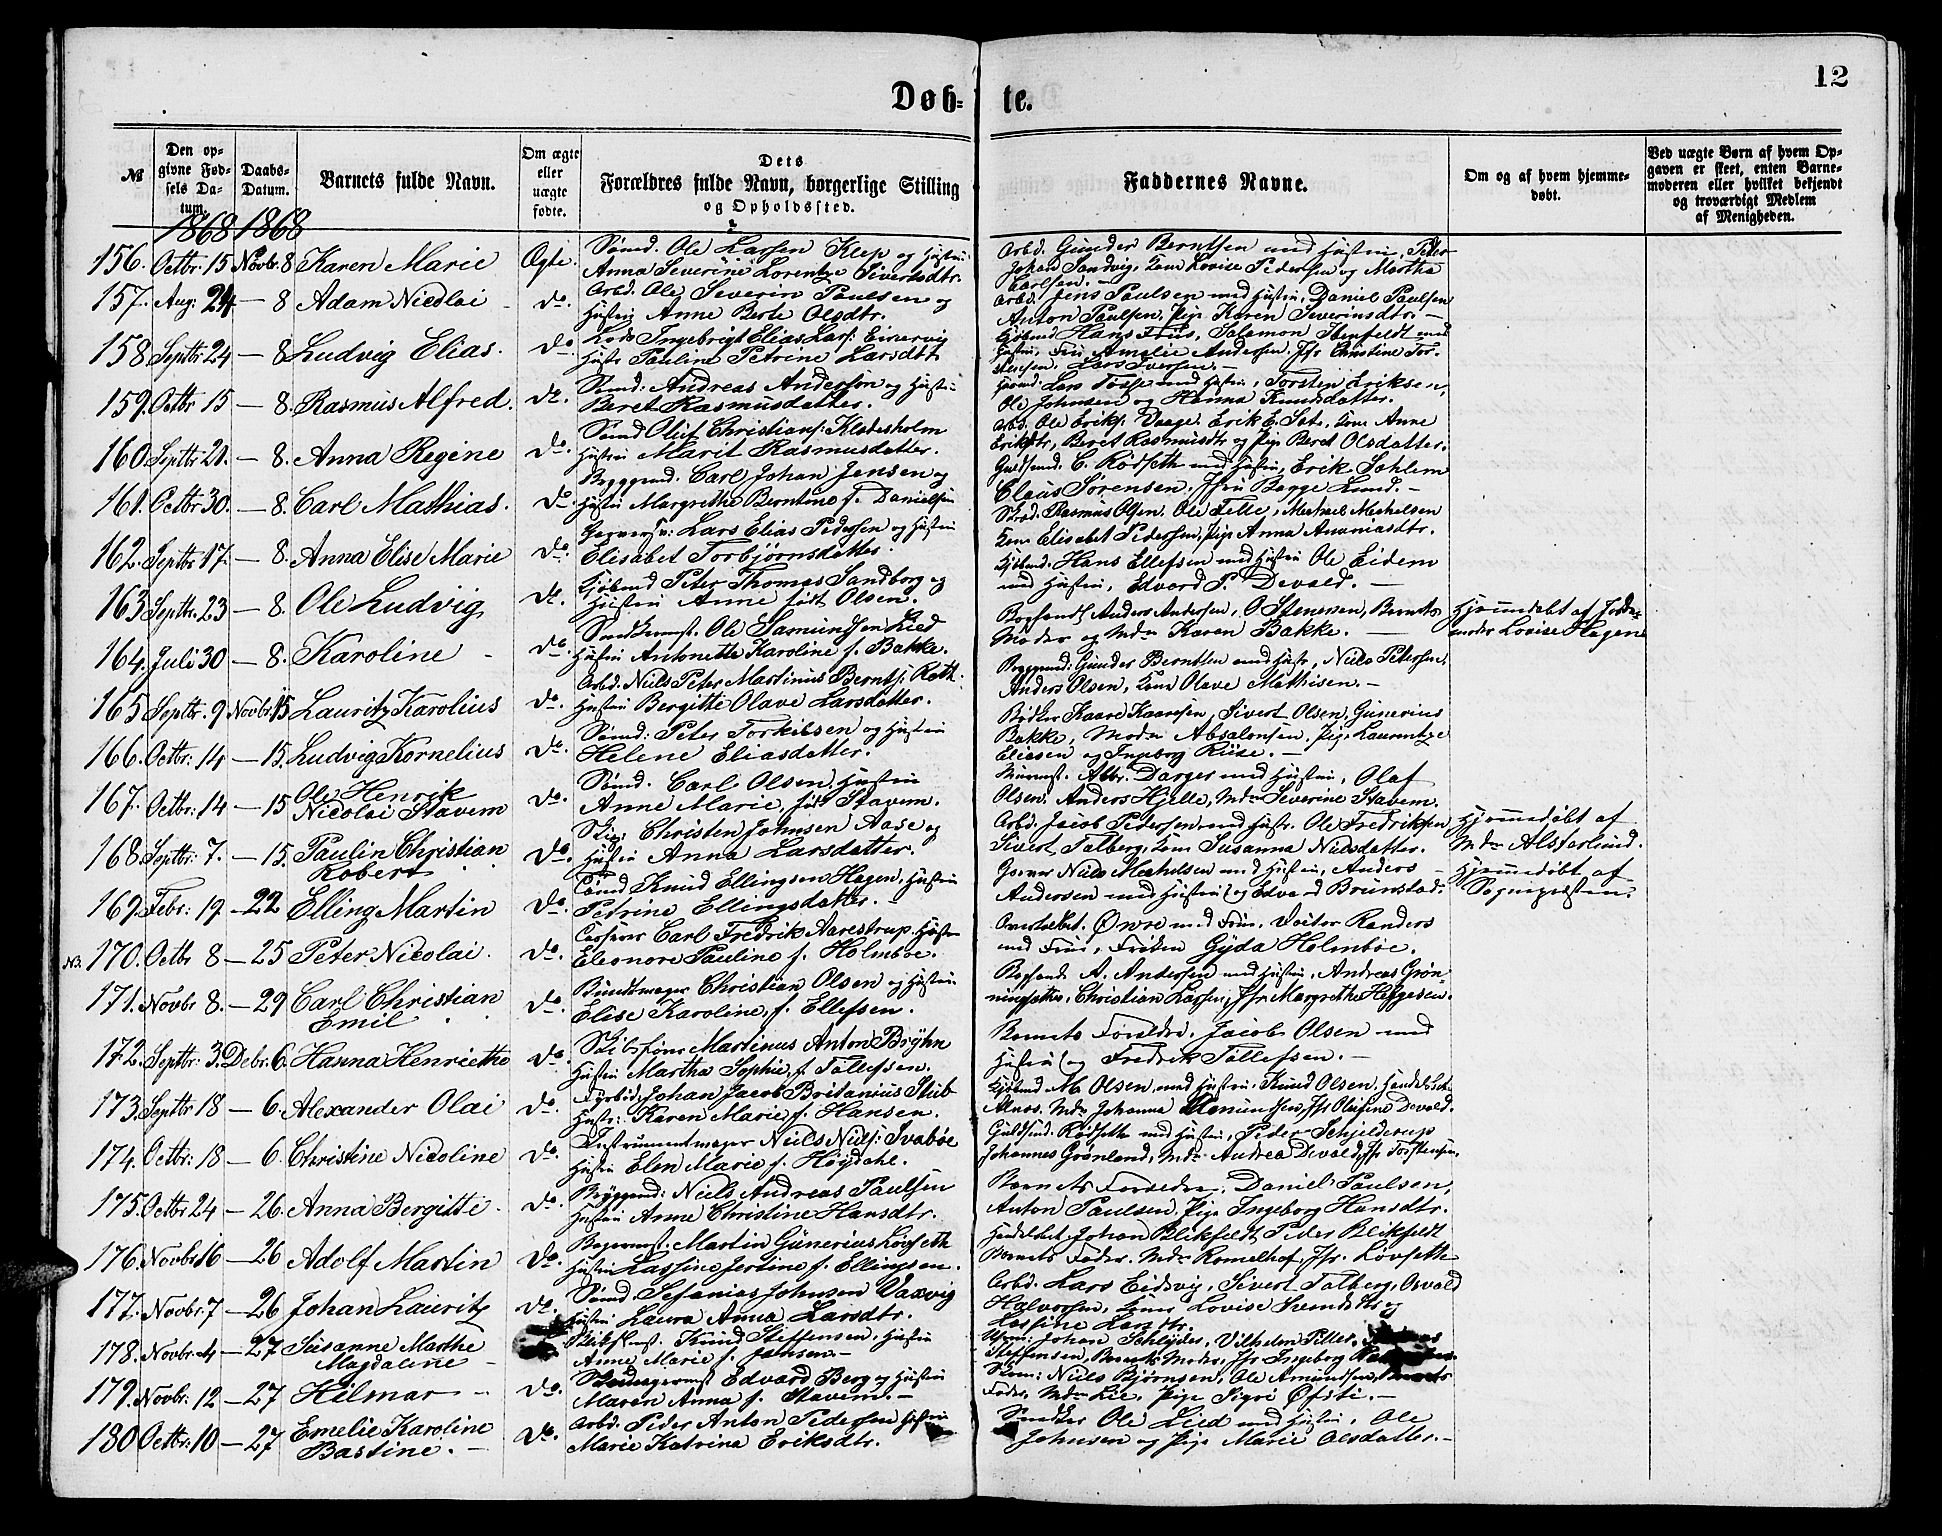 12
Døb- te.
№
Den op-
givne Fød-
sels Da-
tum.
Daabs-
Datum.
Barnets fulde Navn.
Om ægte
eller
uægte
fødte.
Dets
Forældres fulde Navn, borgerlige Stilling
og Opholdssted.
Faddernes Navne.
Om og af hvem hjemme-
døbt.
Ved uægte Børn af hvem Op-
gaven er skeet, enten Barne-
moderen eller hvilket bekjendt
og troværdigt Medlem
af Menigheden.
1868 1868
156. Octbr. 15 Novbr. 8 Karen Marie Ægte.
Sømd. Ole Larsen Klep og Hustru
Anna Severine Lorentze Sivertsdtr.
Arbd. Gunder Berntsen med Hustru, Peter
Johan Sandvig, Kone Lovise Pedersen og Martha
Carlsen. —
157. Aug. 24 — 8 Adam Nicolai do.
Arbd. Ole Severin Paulsen og
Hustru Anne Berte Olsdtr.
Arbd. Jens Paulsen med Hustru, Daniel Paulsen
Anton Paulsen, Pige Karen Severinsdtr. —
158 Septbr. 24 — 8 Ludvig Elias. do.
Lods Ingebrigt Elias Lars:
Hustr. Pauline Petrine Larsdtr
Kjøbmd Hans Friis, Salamon med
Hustru, Frú Amalie Andersen, Jfr Christine Tor-
stensen, Lars Iversen. —
159. Octbr 15 — 8. Rasmus Alfred. do.
Sømd: Andreas Anderssøn og Hustru
Beret Rasmusdatter.
Lars Tosse med Hustru, Torsten Eriksen,
Ole Johnsen og Hanna Knudsdatter.
160. Septbr 21. — 8. Anna Regine do.
Sømd Oluf Christians: Klodesholm
Hustru Marit Rasmusdatter.
Arbd. Ole Eriks. Vaage, Erik E. Sæt, Kone Anne
Eriksdtr, Beret Rasmusdtr og Pige Beret Olsdatter.
161. Octbr 30. — 8. Carl Mathias. do.
Bryggemd. Carl Johan Jensen og
Hustru Margrethe Berntine f. Danielsen
Guldsmd. C. Rødseth med Hustru, Erik Sohlem
Claus Sørensen, Jfru Bagge Lund. —
162. Septbr 17. — 8. Anna Elise Marie do.
Garversv: Lars Elias Pedersen og Hustru
Elisabet Torbjørnsdatter.
Skræd. Rasmus Olsen, Ole Felle, Michael Michelsen
Kone Elisabet Pedersen, Pige Anna Ananiasdtr.
163 Septbr. 23 — 8. Ole Ludvig do.
Kjøbmd Peter Thomas Sandborg og
Hustru Anne født Olsen.
Kjøbmd. Hans Ellefsen med Hustru Ole Eidem
med Hustru, Edvard P. Devold. —
164. Juli 30 — 8. Karoline do.
Snedkermst. Ole Samundsen Lied
Hustru Antonette Karoline f. Bakke.
Bogholdr Anders Andersen, O. Stenersen, Barnets
Moder og Mdm Karen Bakke. —
Hjemmedøbt af Jorde-
moder Lovise Hagene
165 Septbr. 9 Novbr. 15 Lauritz Karolius do.
Arbd. Niels Peter Martinus Bernts: Roth.
Hustru Bergitte Olave Larsdatter.
Bryggmd: Gunder Berntsen med Hustr, Niels Petersen
Anders Olsen, Kone Olave Mathisen. —
166. Octbr: 14 — 15. Ludvig Kornelius do.
Sømd: Peter Torkildsen og Hustru
Helene Eliasdatter.
Bødker Kaare Kaaresen, Sivert Olsen, Gunerius
Bakke, Mdm Absalonsen, Pige Laurentze
Eliesen og Ingeborg Riise. —
167. Octbr: 14 — 15 Ole Henrik
Nicolai Stavem do.
Sømd. Carl Olsen, Hustru
Anne Marie, født Stavem.
Murmst. Albr. Darger med Hustru, Olaf
Olsen, Anders Hjelle, Mdm Severine Stavem.
168. Septbr: 7. — 15. Paulin Christian
Robert do.
Skip: Christen Johnsen Aase og
Hustru Anna Larsdatter.
Arbd. Jacob Pedersen med Hustr. Ole Fredriksen
Sivert Talberg, Kone Susanna Nielsdatter.
Hjemmedøbt af
Mdm Alsterlund.
169. Febr. 19 — 22 Elling Martin do.
Sømd Knud Ellingsen Hagen, Hustru
Petrine Ellingsdatter.
Garver Niels Michelsen med Hustru, Anders
Andersen med Hustru og Edvard Brunstad.
Hjemmedøbt af
Sognepræsten.
N3. 170. Octbr 8 — 25 Peter Nicolai. do.
Casserer Carl Fredrik Aarestrup, Hustru
Eleonore Pauline f. Holmboe.
Øwre med Frue, Doctor Randers
med Frue, Frøken Gyda Holmboe.
171. Novbr 8. — 29 Carl Christian
Emil do.
Buntmager Christian Olsen og Hustru
Elise Karoline, f. Ellefsen.
Boghand. A. Andersen med Hustru, Andreas Grøn-
ningsæther, Christian Larsen, Jfr Margrethe Helgesen.
172. Septbr: 3. Debr. 6. Hanna Henriette do.
Skibsfører Martinus Anton Bryhn
Hustru Martha Sophie, f. Tollefsen.
Barnets Forældre, Jacob Olsen med
Hustru og Fredrik Tollefsen. —
173. Septbr 18 — 6. Alexander Olai do.
Fyrbød. Johan Jacob Britanius Stub
Hustr: Karen Marie f. Hansen.
Kjøbmd M. Olsen med Hustru, Knud Olsen, Handelsbet.
Alnæs, Mdm Johanna Amundsen, Jfr Olufine Devold.
174. Octbr: 18 — 6. Christine Nicoline do.
Instrumentmager Niels Niels: Svabøe
Hustru Elen Marie f. Høydahl.
Guldsmd: Rødseth med Hustru, Peder Schjelderup
Johannes Grønland, Mdm Andrea Devold, Jfr Torstensen.
175. Octbr 24 — 26. Anna Bergitte. do.
Bryggmd: Niels Andreas Paulsen
Hustru Anne Christine Hansdtr.
Barnets Forældre, Daniel Paulsen,
Anton Paulsen, Pige Ingeborg Hansdtr.
176. Novbr. 16 — 26 Adolf Martin do.
Bagermst: Martin Gunerius Løvseth
Hustru Lassine Jertine f. Ellingsen.
Handelsbet Johan Blikfeldt, Peder Blikfeldt
Barnets Fader, Mdm Romelhof, Jfr. Løvseth
177. Novbr. 7 — 26 Johan Lauritz do.
Sømd Sefanias Johnsen Vaxvig
Hustru Laura Anna Larsdtr.
Arbd. Lars Eidsvig, Sivert Talberg, Osvald
Halvorsen, Kone Lovise og
Lassine Larsdtr.
178. Novbr. 4 — 27 Susanne Marthe
Magdalene —
Knud Steffensen, Hustru
Anne Marie f. Jansen. —
Johan Schlyder, Vilhelm Piller,
Steffensen, Barnets Moder, Jfr Ingeborg
179. Novbr. 12 — 27 Hilmar — do.
Edvard Berg og Hustru
Maren Anna f. Stavem. —
Skom: Niels Bjørnsen, Ole Amundsen, Barnets
Fader, Mdm Lie, Pige Sigri Øfsti. —
180 Octbr: 10 — 27 Emelie Karoline
Bastine. — do.
Arbd. Peder Anton Pedersen Hustru
Marie Katrina Eriksdtr.
Snedker Ole Lied med Hustru, Ole
Johnsen og Pige Marie Olsdatter. —